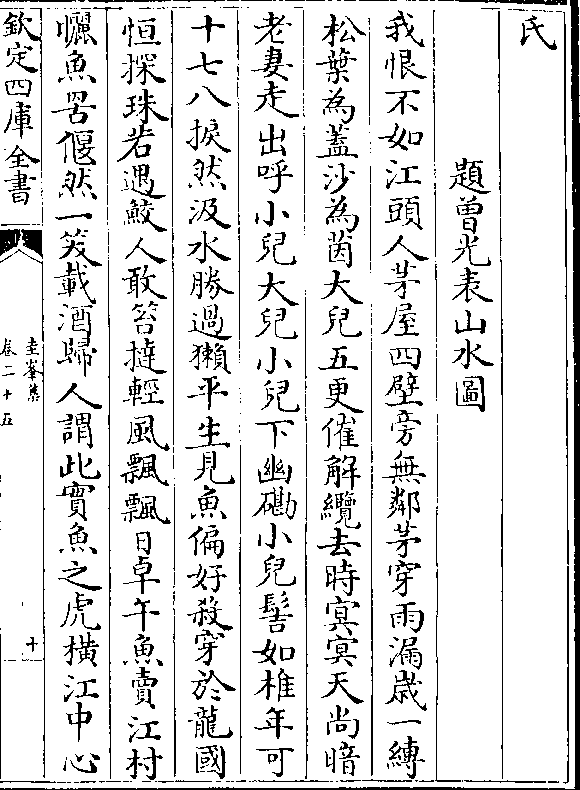 氏
題曾光表山水圖
我恨不如江頭人茅屋四壁旁無鄰茅穿雨漏歲一縛
松葉為蓋沙為茵大兒五更催解纜去時㝠㝠天尚暗
老妻走出呼小兒大兒小兒下幽磡小兒髻如椎年可
十七八捩然汲水勝過獺平生見魚偏好殺穿於龍國
恒探珠若遇鮫人敢笞撻輕風飄飄日卓午魚賣江村
曬魚罟偃然一笑載酒歸人謂此實魚之虎橫江中心
欽定四庫全書
圭峯集
卷二十五
十